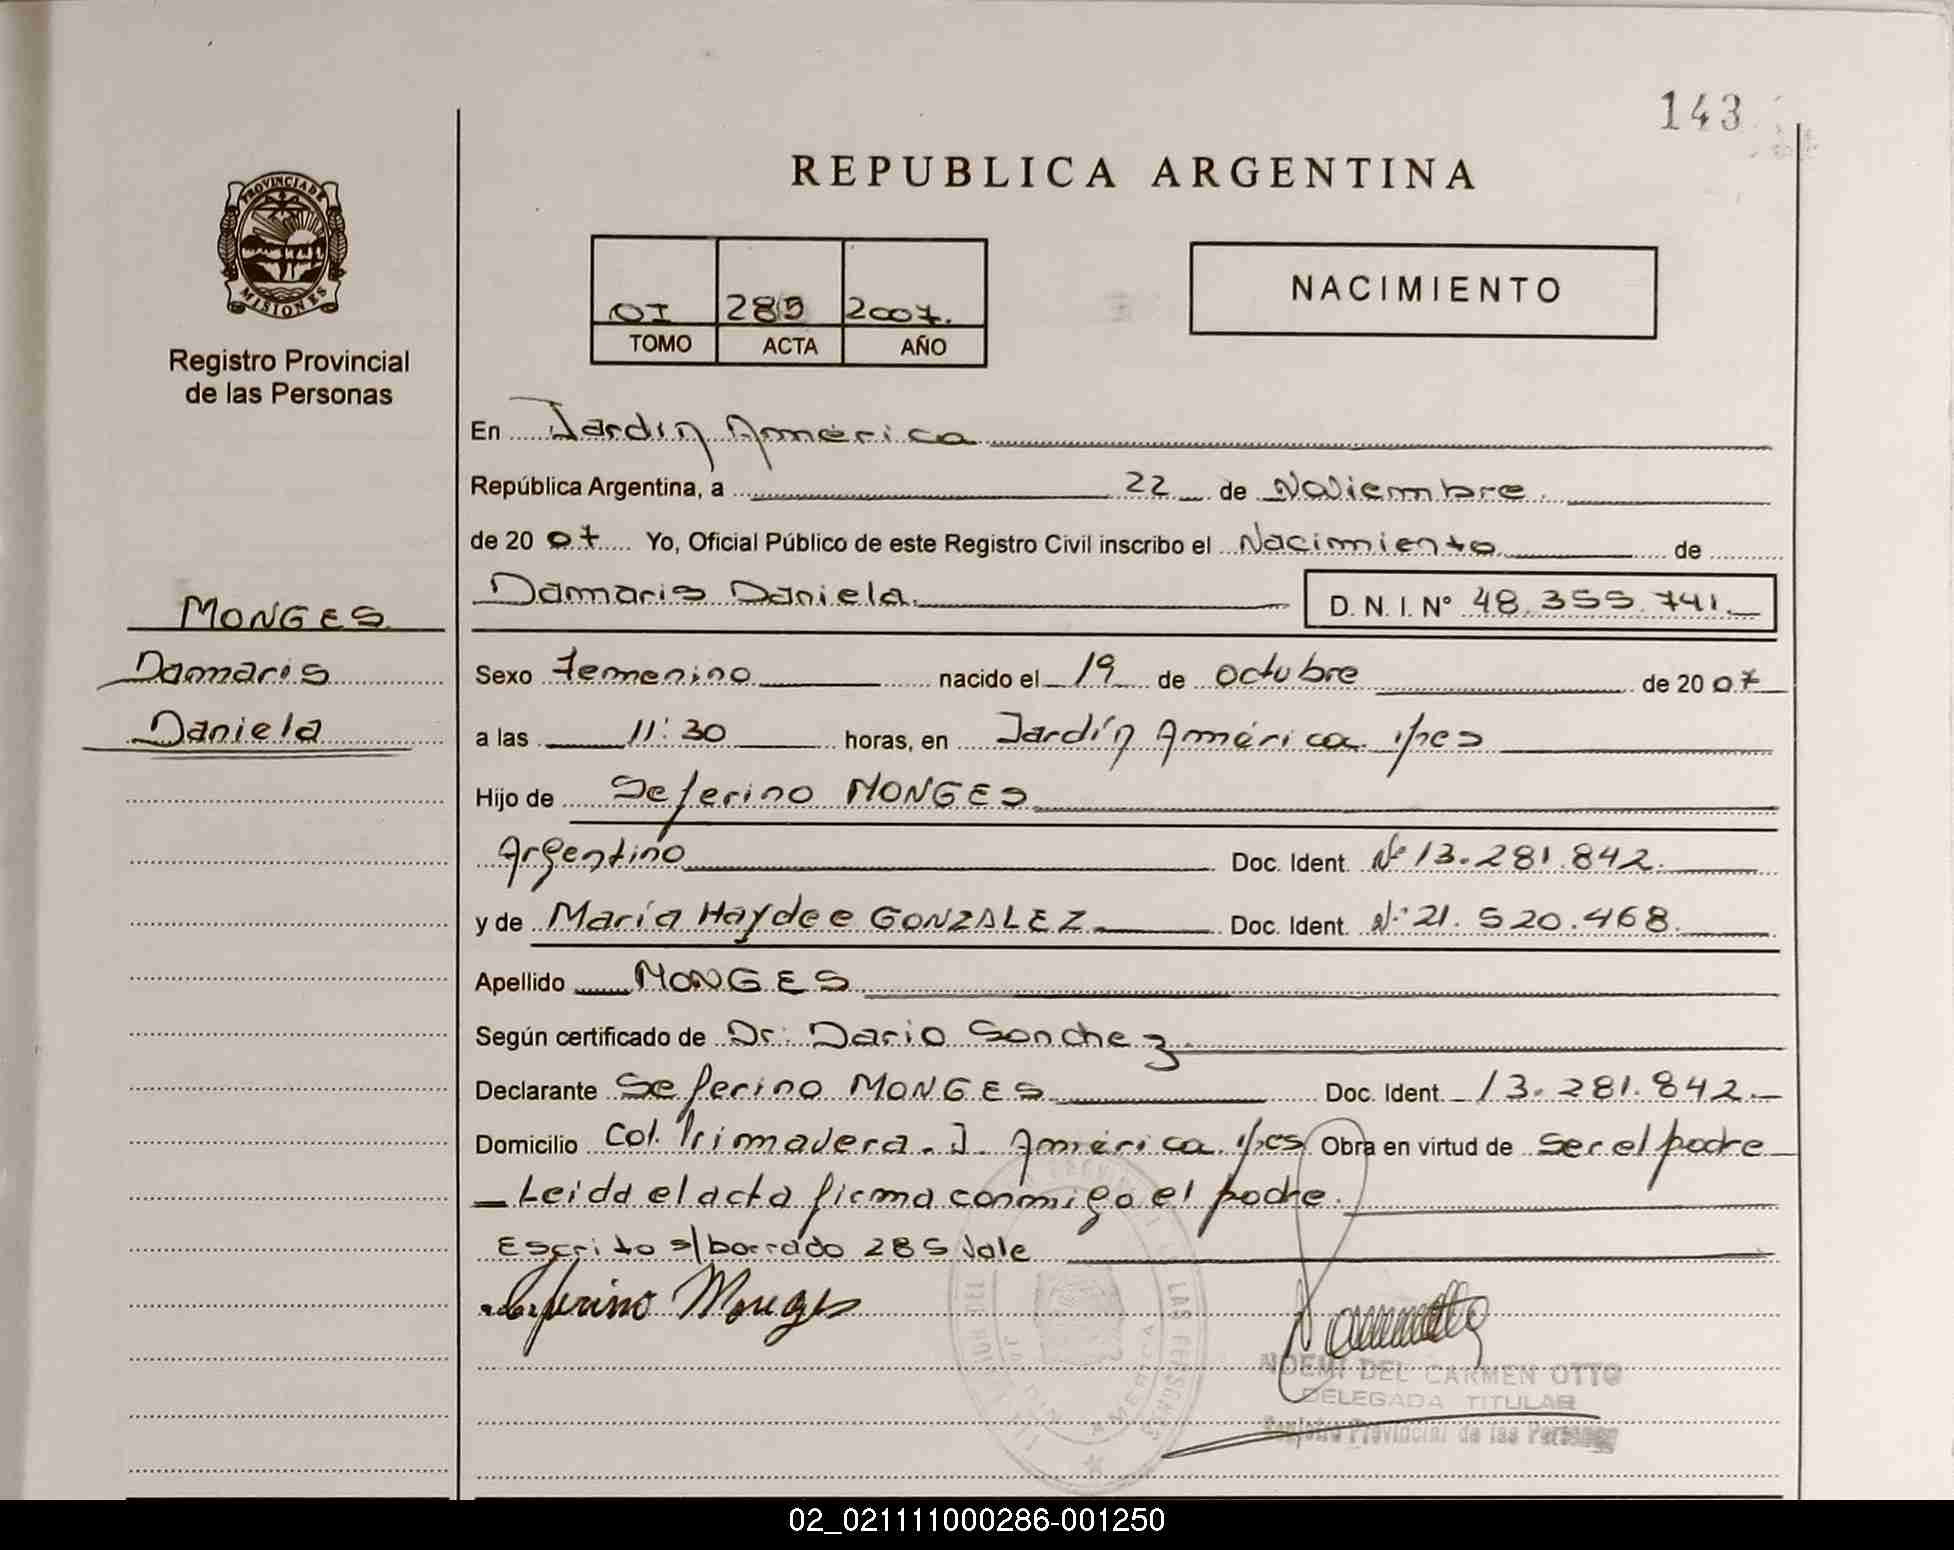 143
REPUBLICA ARGENTINA
PROVINCIA DE
MISIONES
Registro Provincial
de las Personas
OI 285 2007.
TOMO ACTA AÑO
NACIMIENTO
En Jardín América
República Argentina, a 22 de Noviembre
de 20 07 Yo, Oficial Público de este Registro Civil inscribo el Nacimiento de
Damaris Daniela D. N. I. Nº 48.355.741.
MONGES
Damaris
Daniela
Sexo Femenino nacido el 19 de octubre de 20 07
a las 11:30 horas, en Jardín América
Hijo de Seferino MONGES
Argentino Doc. Ident. Nº 13.281.842.
y de María Haydee GONZALEZ Doc. Ident. Nº 21.520.468.
Apellido MONGES
Según certificado de Dr. Dario Sanchez.
Declarante Seferino MONGES Doc. Ident. 13.281.842.
Domicilio Col. Primavera. J. América Obra en virtud de Ser el padre
Leida el acta firma conmigo el padre.
Escrito s/borrado 285 Vale
Seferino Monges
NOEMI DEL CARMEN OTTO
DELEGADA TITULAR
Registro Provincial de las Personas
02_021111000286-001250